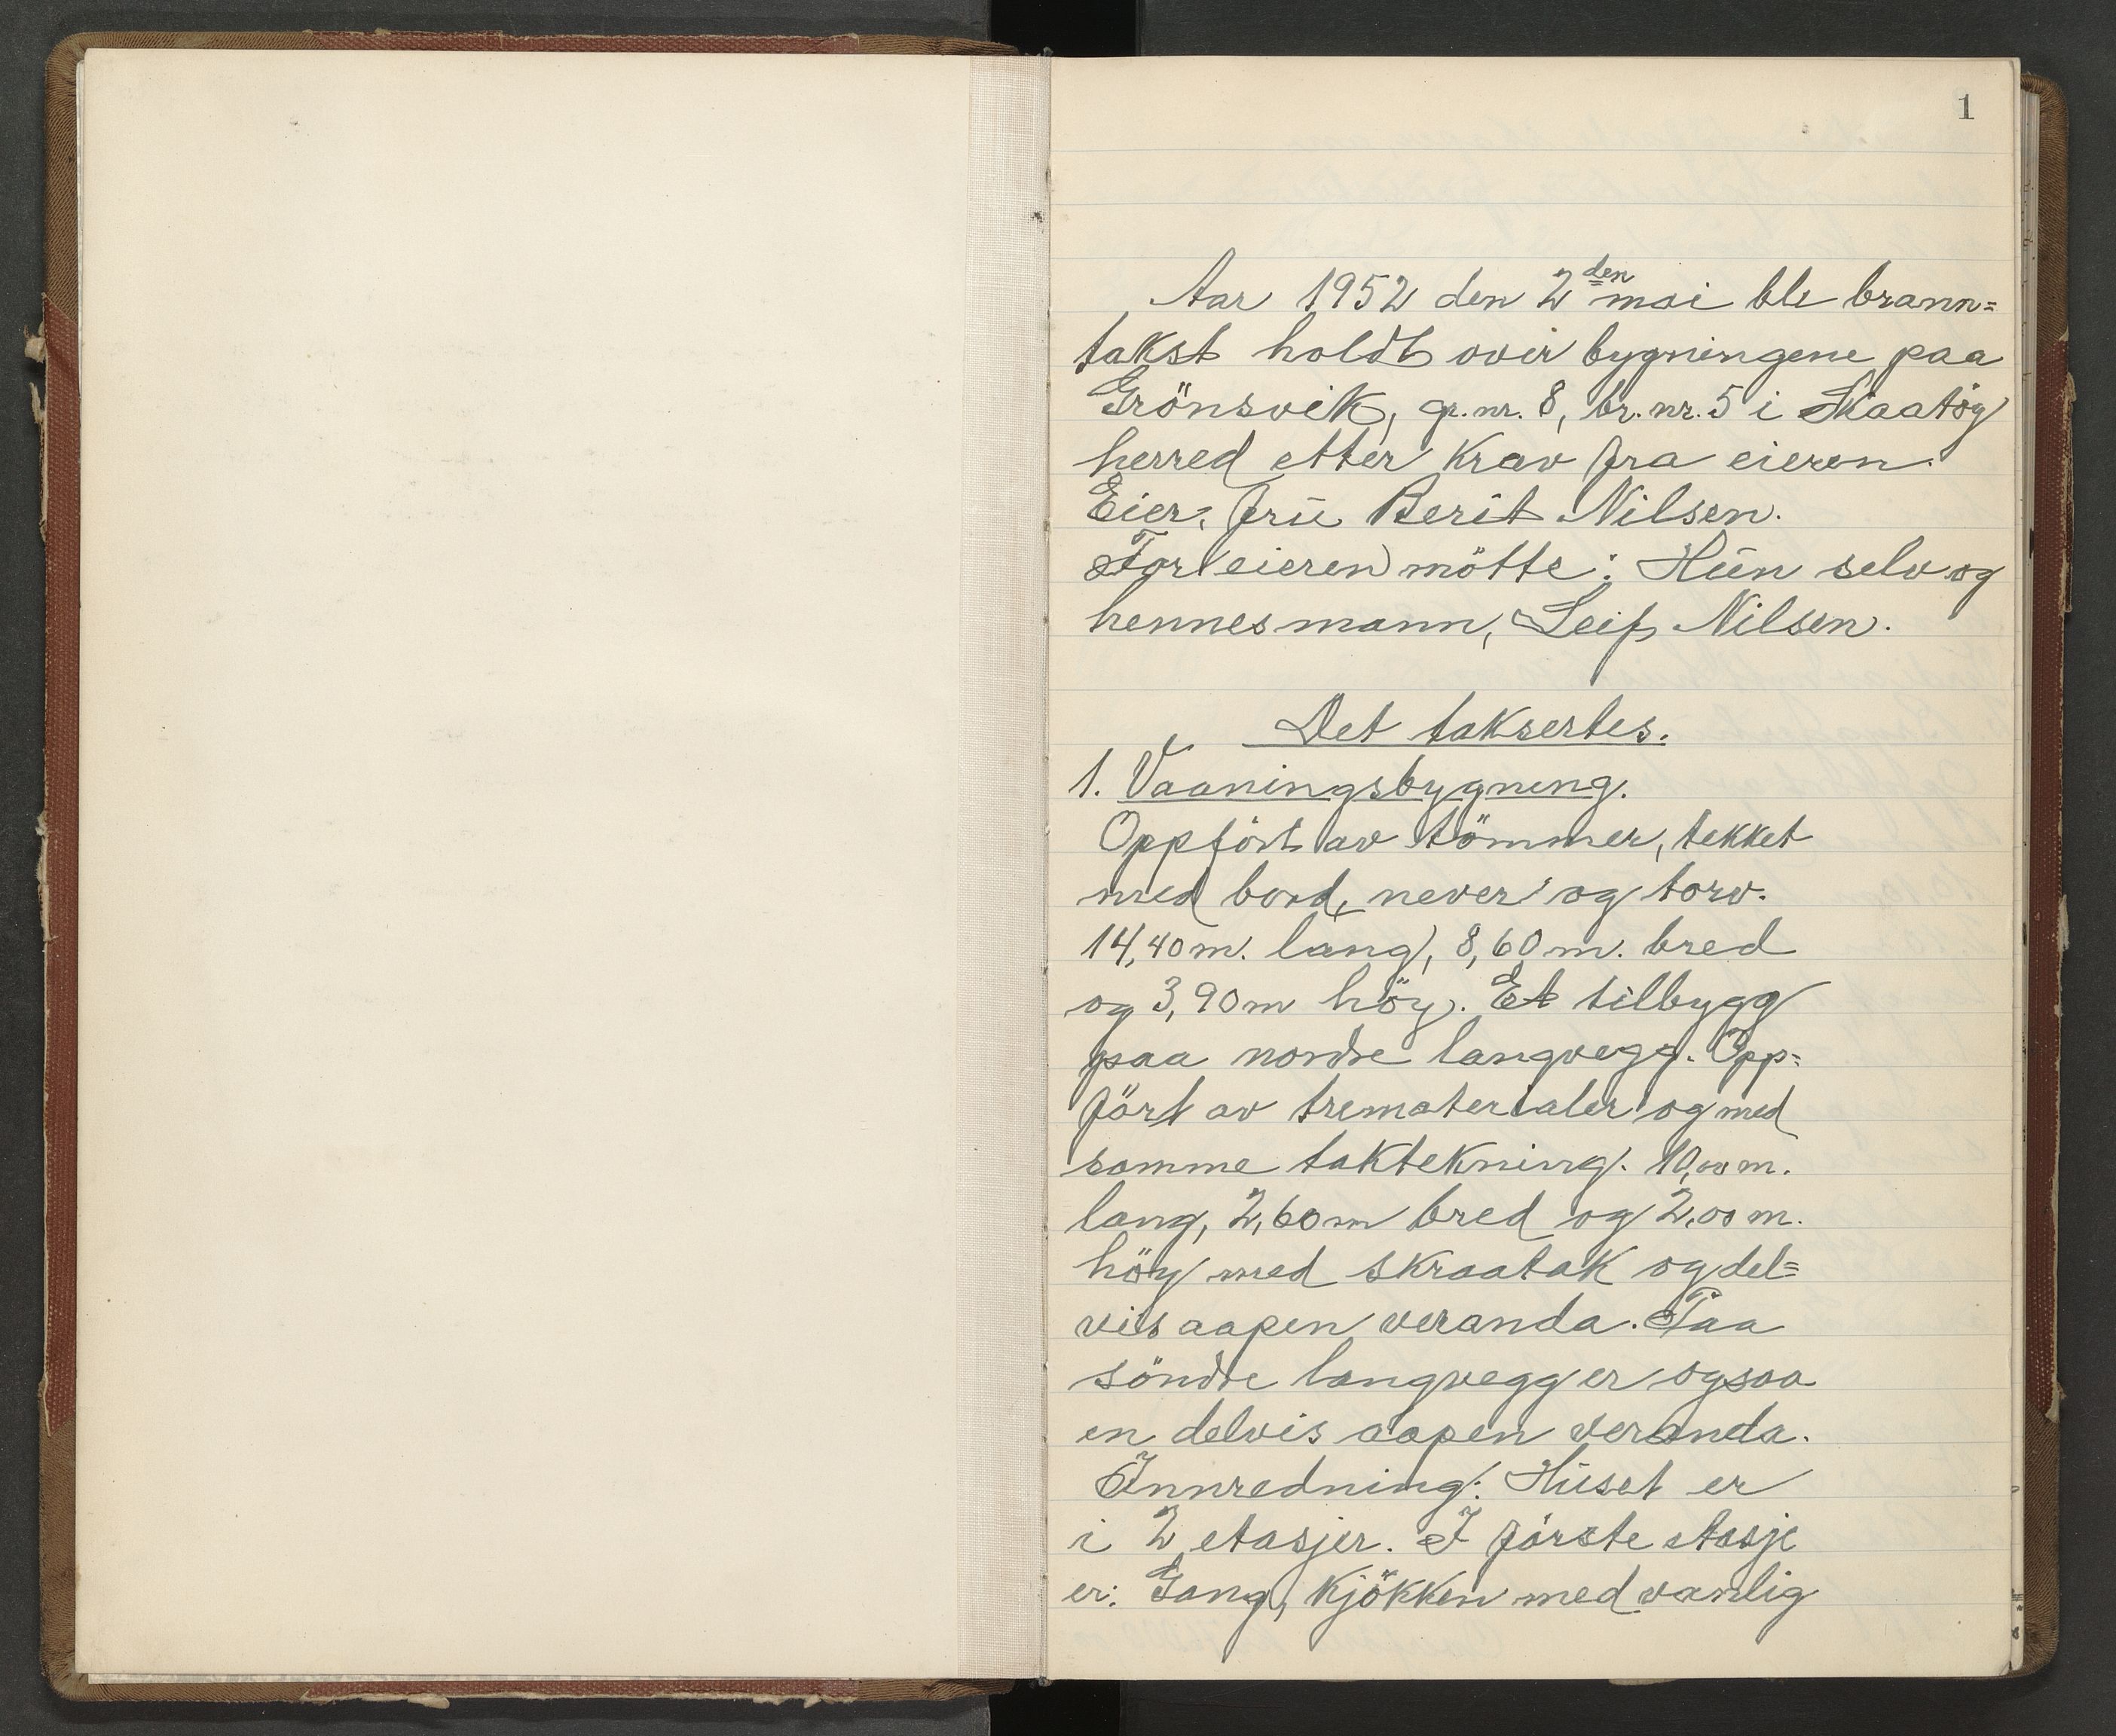 1
Aar 1952 den 2den mai ble brann=
takst holdt over bygningene paa
Grönsvik, gr. nr. 8, br. nr. 5 i Skaatöy
herred etter krav fra eieren.
Eier, fru Berit Nilsen.
For eieren mötte: Hun selv og
hennes mann, Leif Nilsen.
Det taksertes.
1. Vaaningsbygning.
Oppfört av tömmer, tekket
med bord, never og torv.
14,40 m. lang, 8,60 m. bred
og 3,90 m höy. Et tilbygg
paa nordre langvegg. Opp=
fört av trematerialer og med
samme taktekning. 10,00 m.
lang, 2,60 m bred og 2,00 m.
höy med skraatak og del=
vis aapen veranda. Paa
söndre langvegg er ogsaa
en delvis aapen veranda.
Innredning: Huset er
i 2 etasjer. I förste etasje
er: Gang, kjökken med vanlig